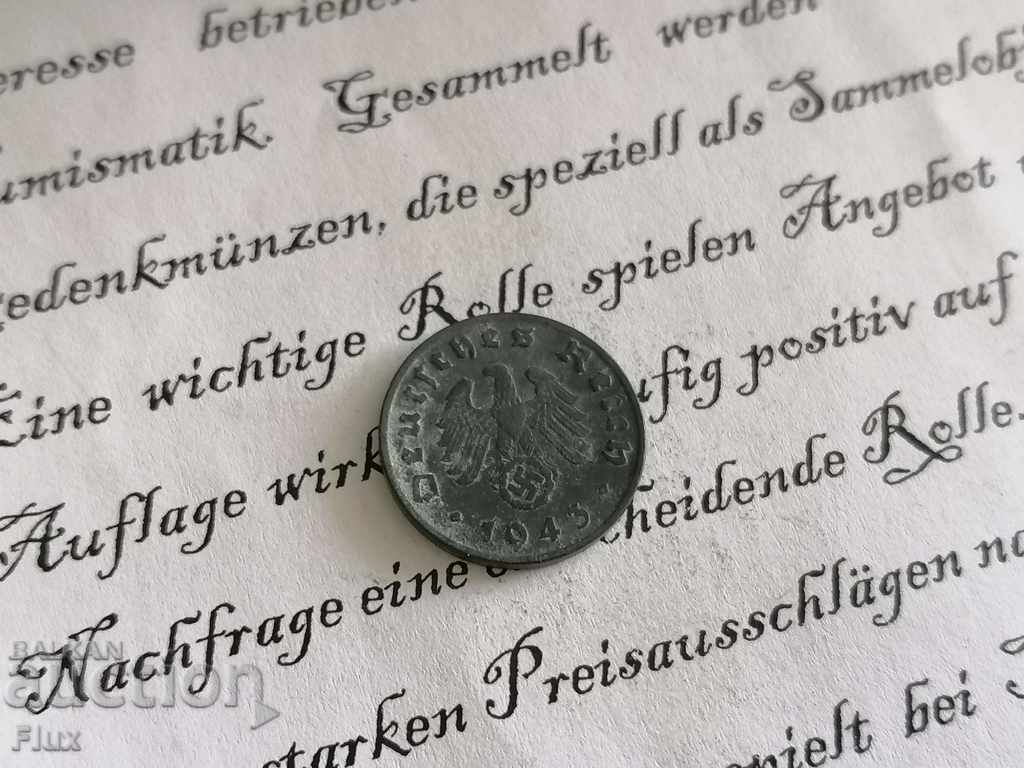 betrieben
Numismatik. Gesammelt werden
Gedenkmünzen, die speziell als Sammelobj
Eine wichtige Rolle spielen Angebot
Auflage wirk ufig positiv auf
Nachfrage eine cheidende Rolle.
starken Preisausschlägen
bei
Deutsches Reich
1943
BALKAN
auction
Flux